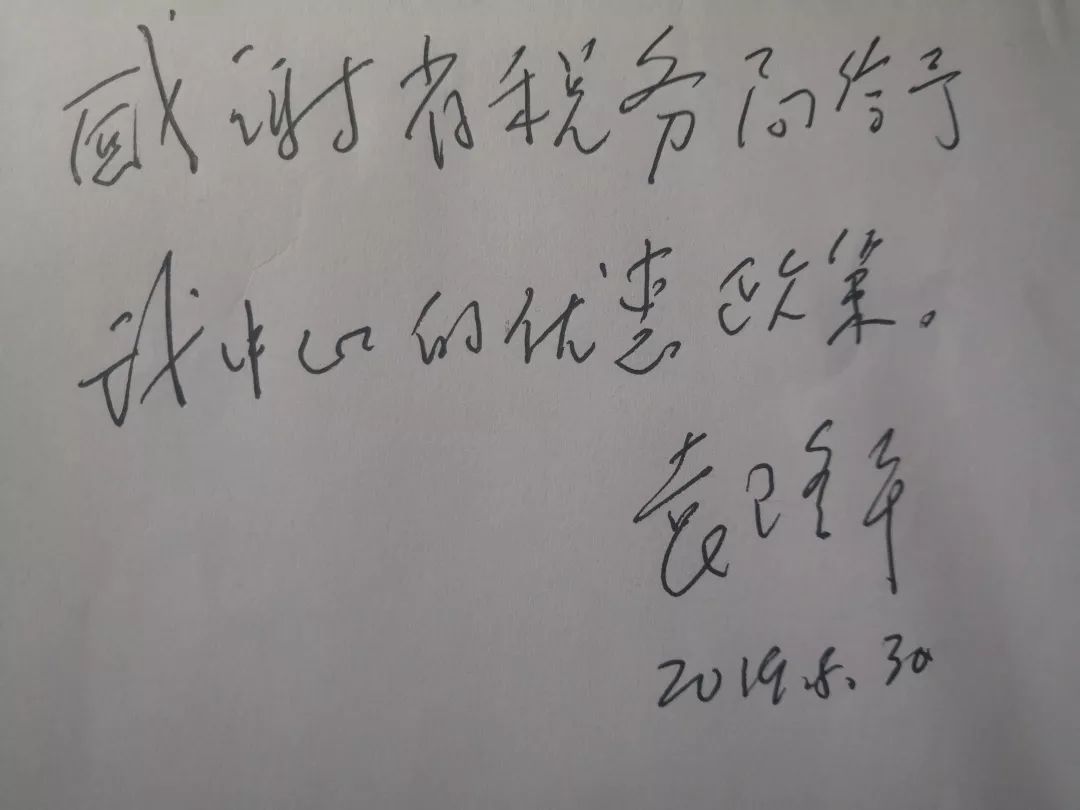 感谢省税务局给予
我中心的优惠政策。
袁隆平
2019.5.30